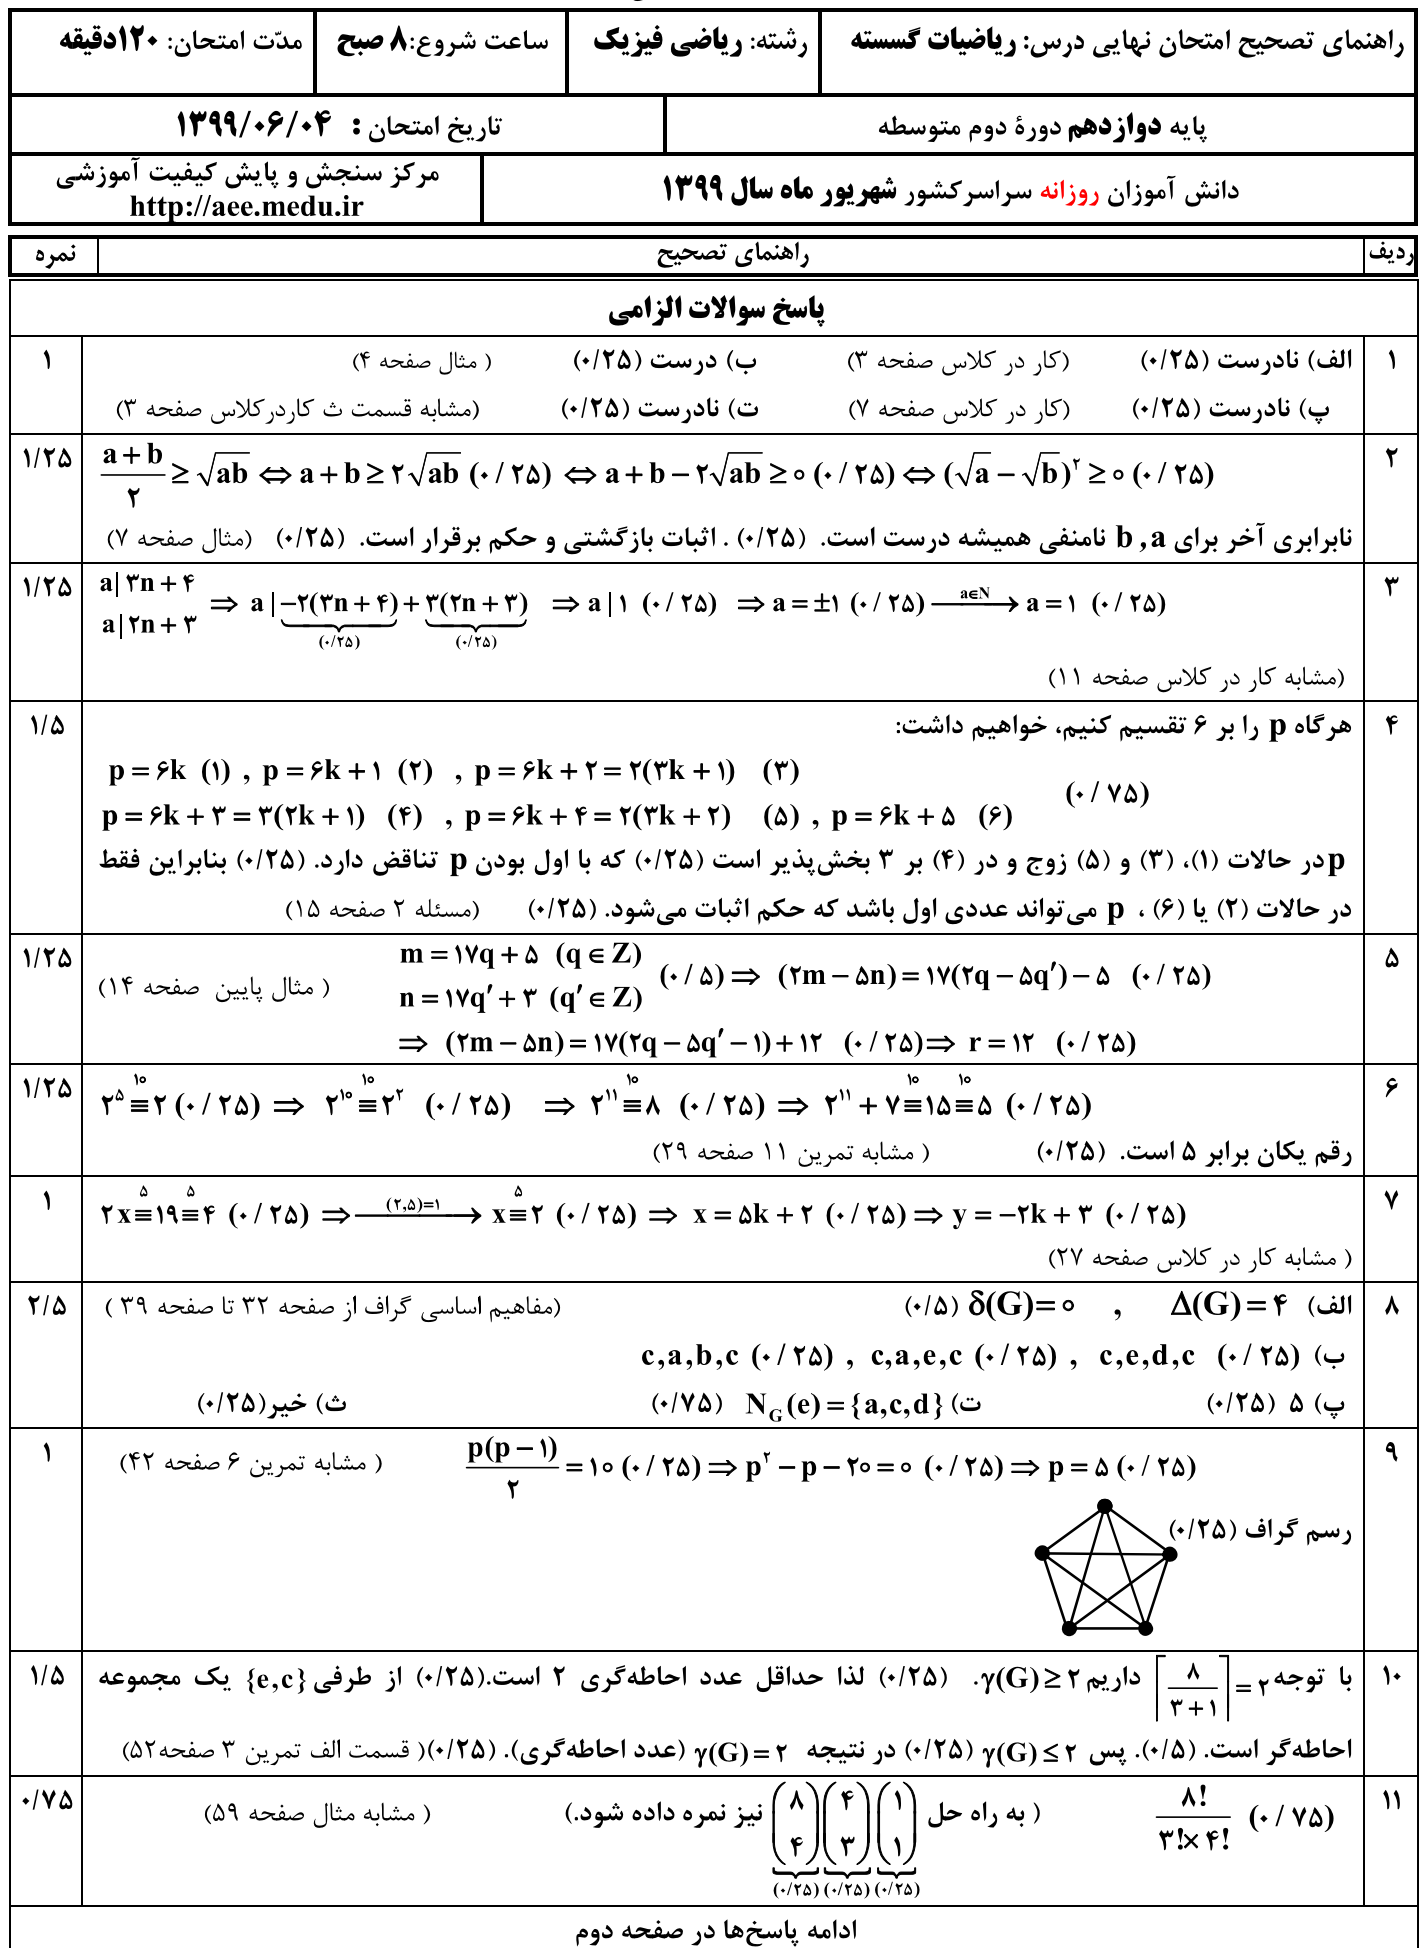 راهنمای تصحیح امتحان نهایی درس: ریاضیات گسسته	رشته: ریاضی فیزیک	ساعت شروع:۸ صبح	مدّت امتحان: ۱۲۰دقیقه
پایه دوازدهم دورۀ دوم متوسطه	تاریخ امتحان : ۱۳۹۹/۰۶/۰۴
دانش آموزان روزانه سراسرکشور شهریور ماه سال ۱۳۹۹	مرکز سنجش و پایش کیفیت آموزشی
http://aee.medu.ir
ردیف	راهنمای تصحیح	نمره
پاسخ سوالات الزامی
۱	الف) نادرست (۰/۲۵) (کار در کلاس صفحه ۳) ب) درست (۰/۲۵) ( مثال صفحه ۴)	۱
پ) نادرست (۰/۲۵) (کار در کلاس صفحه ۷) ت) نادرست (۰/۲۵) (مشابه قسمت ث کاردرکلاس صفحه ۳)
۲	(a+b)/۲ ≥ √ab ⇔ a+b ≥ ۲√ab (۰/۲۵) ⇔ a+b−۲√ab ≥ ۰ (۰/۲۵) ⇔ (√a − √b)² ≥ ۰ (۰/۲۵)	۱/۲۵
نابرابری آخر برای b , a نامنفی همیشه درست است. (۰/۲۵) . اثبات بازگشتی و حکم برقرار است. (۰/۲۵) (مثال صفحه ۷)
۳	a | ۳n+۴	۱/۲۵
a | ۲n+۳ ⇒ a | −۲(۳n+۴) (۰/۲۵) + ۳(۲n+۳) (۰/۲۵) ⇒ a | ۱ (۰/۲۵) ⇒ a = ±۱ (۰/۲۵) —a∈N→ a = ۱ (۰/۲۵)
(مشابه کار در کلاس صفحه ۱۱)
۴	هرگاه p را بر ۶ تقسیم کنیم، خواهیم داشت:	۱/۵
p = ۶k (۱) , p = ۶k+۱ (۲) , p = ۶k+۲ = ۲(۳k+۱) (۳)
(۰/۷۵)
p = ۶k+۳ = ۳(۲k+۱) (۴) , p = ۶k+۴ = ۲(۳k+۲) (۵) , p = ۶k+۵ (۶)
pدر حالات (۱)، (۳) و (۵) زوج و در (۴) بر ۳ بخش‌پذیر است (۰/۲۵) که با اول بودن p تناقض دارد. (۰/۲۵) بنابراین فقط
در حالات (۲) یا (۶) ، p می‌تواند عددی اول باشد که حکم اثبات می‌شود. (۰/۲۵) (مسئله ۲ صفحه ۱۵)
۵	m = ۱۷q+۵ (q∈Z)	۱/۲۵
n = ۱۷q′+۳ (q′∈Z) (۰/۵) ⇒ (۲m−۵n) = ۱۷(۲q−۵q′)−۵ (۰/۲۵) ( مثال پایین صفحه ۱۴)
⇒ (۲m−۵n) = ۱۷(۲q−۵q′−۱)+۱۲ (۰/۲۵) ⇒ r = ۱۲ (۰/۲۵)
۶	۲^۵ ≡(۱۰) ۲ (۰/۲۵) ⇒ ۲^۱۰ ≡(۱۰) ۲^۲ (۰/۲۵) ⇒ ۲^۱۱ ≡(۱۰) ۸ (۰/۲۵) ⇒ ۲^۱۱+۷ ≡(۱۰) ۱۵ ≡(۱۰) ۵ (۰/۲۵)	۱/۲۵
رقم یکان برابر ۵ است. (۰/۲۵) ( مشابه تمرین ۱۱ صفحه ۲۹)
۷	۲x ≡(۵) ۱۹ ≡(۵) ۴ (۰/۲۵) ⇒ —(۲,۵)=۱→ x ≡(۵) ۲ (۰/۲۵) ⇒ x = ۵k+۲ (۰/۲۵) ⇒ y = −۲k+۳ (۰/۲۵)	۱
( مشابه کار در کلاس صفحه ۲۷)
۸	الف) Δ(G)=۴ , δ(G)=۰ (۰/۵) (مفاهیم اساسی گراف از صفحه ۳۲ تا صفحه ۳۹ )	۲/۵
ب) c,a,b,c (۰/۲۵) , c,a,e,c (۰/۲۵) , c,e,d,c (۰/۲۵)
پ) ۵ (۰/۲۵) ت) N_G(e) = {a,c,d} (۰/۷۵) ث) خیر(۰/۲۵)
۹	p(p−۱)/۲ = ۱۰ (۰/۲۵) ⇒ p²−p−۲۰ = ۰ (۰/۲۵) ⇒ p = ۵ (۰/۲۵) ( مشابه تمرین ۶ صفحه ۴۲)	۱
رسم گراف (۰/۲۵)
۱۰	با توجه ⌈۸/(۳+۱)⌉ = ۲ داریم γ(G) ≥ ۲. (۰/۲۵) لذا حداقل عدد احاطه‌گری ۲ است.(۰/۲۵) از طرفی {e,c} یک مجموعه	۱/۵
احاطه‌گر است. (۰/۵). پس γ(G) ≤ ۲ (۰/۲۵) در نتیجه γ(G) = ۲ (عدد احاطه‌گری). (۰/۲۵)( قسمت الف تمرین ۳ صفحه۵۲)
۱۱	۸!/(۳!×۴!) (۰/۷۵) ( به راه حل (۸ ۴) (۰/۲۵) (۴ ۳) (۰/۲۵) (۱ ۱) (۰/۲۵) نیز نمره داده شود.) ( مشابه مثال صفحه ۵۹)	۰/۷۵
ادامه پاسخ‌ها در صفحه دوم